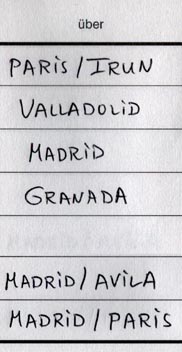 über
PARIS / IRUN
VALLADOLID
MADRID
GRANADA
MADRID / AVILA
MADRID / PARIS